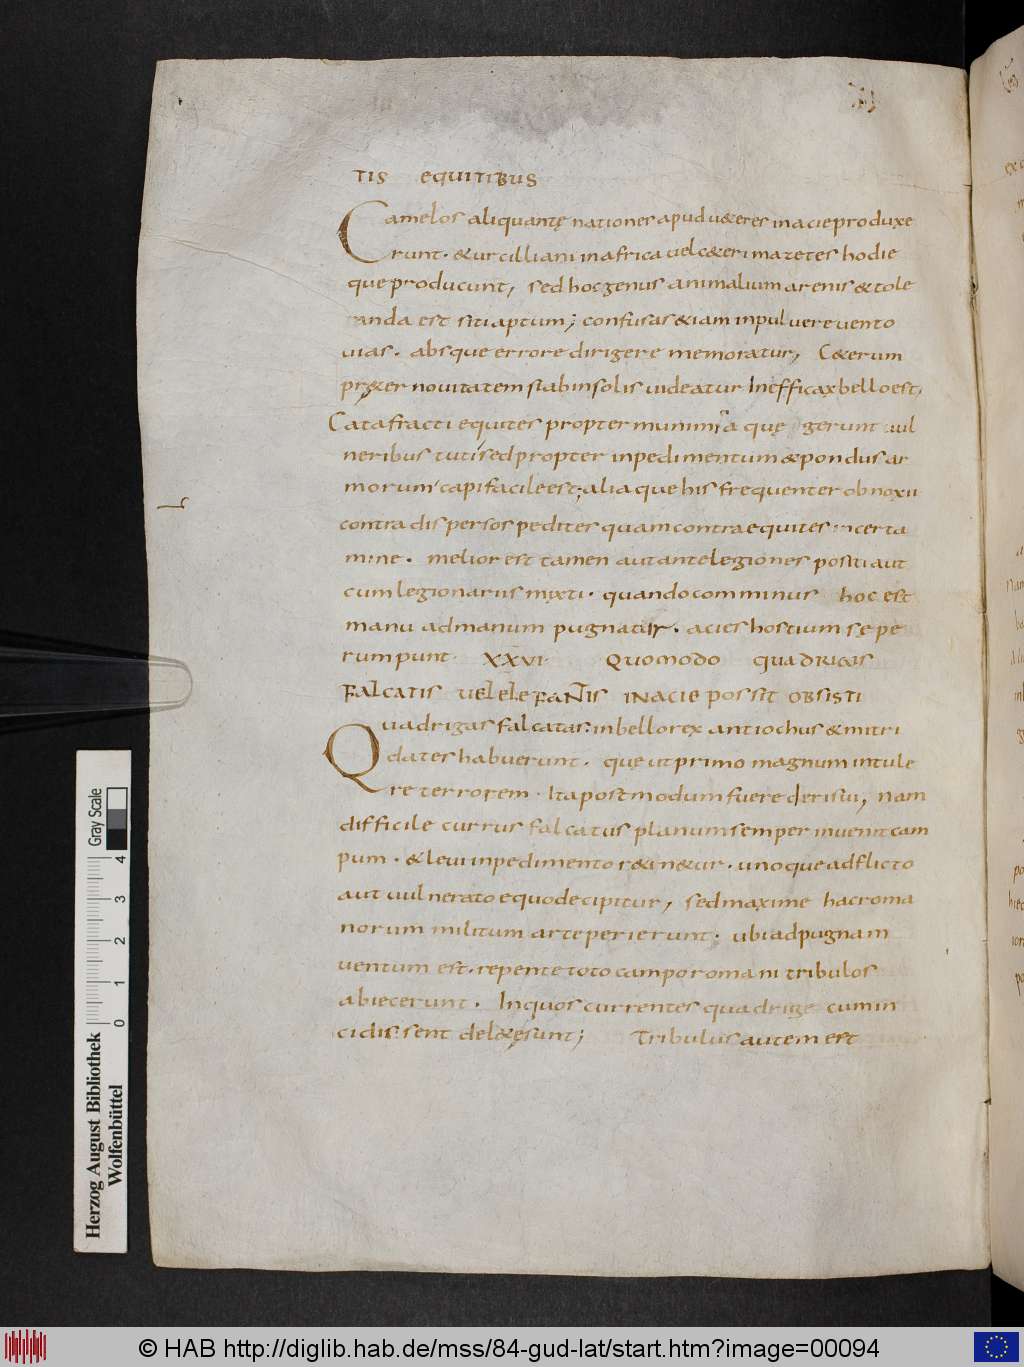 TIS EQUITIBUS
Camelos aliquantę nationes apud u&eres in acie produxe
runt. & urcilliani in africa uel c&eri mazetes hodie
que producunt, sed hoc genus animalium arenis & tole
randa est siti aptum; confusas &iam in puluere uento
uias. absque errore dirigere memoratur, C&erum
pręter nouitatem si ab insolis uideatur Inefficax bello est,
Catafracti equites propter munimina quę gerunt uul
neribus tuti sed propter inpedimentum & pondus ar
morum capi facile est; aliaque his frequenter obnoxii
contra dispersos pedites quam contra equites in certa
mine. melior est tamen aut ante legiones positi aut
cum legionariis mixti. quando comminus hoc est
manu ad manum pugnatur. acies hostium sępe
rumpunt. XXVI QUOMODO QUADRIGIS
FALCATIS UEL ELEFANTIS IN ACIE POSSIT OBSISTI
Quadrigas falcatas: in bello rex antiochus & mitri
dates habuerunt. quę ut primo magnum intule
re terrorem. Ita postmodum fuere derisui, nam
difficile currus falcatus planum semper inuenit cam
pum. & leui inpedimento r&in&ur. unoque adflicto
aut uulnerato equo decipitur, sed maxime hac roma
norum militum arte perierunt; ubi ad pugnam
uentum est. repente toto campo romani tribulos
abiecerunt. In quos currentes quadrigę cum in
cidissent del&ę sunt; Tribulus autem est
Gray Scale
4
3
2
1
0
Herzog August Bibliothek
Wolfenbüttel
© HAB http://diglib.hab.de/mss/84-gud-lat/start.htm?image=00094